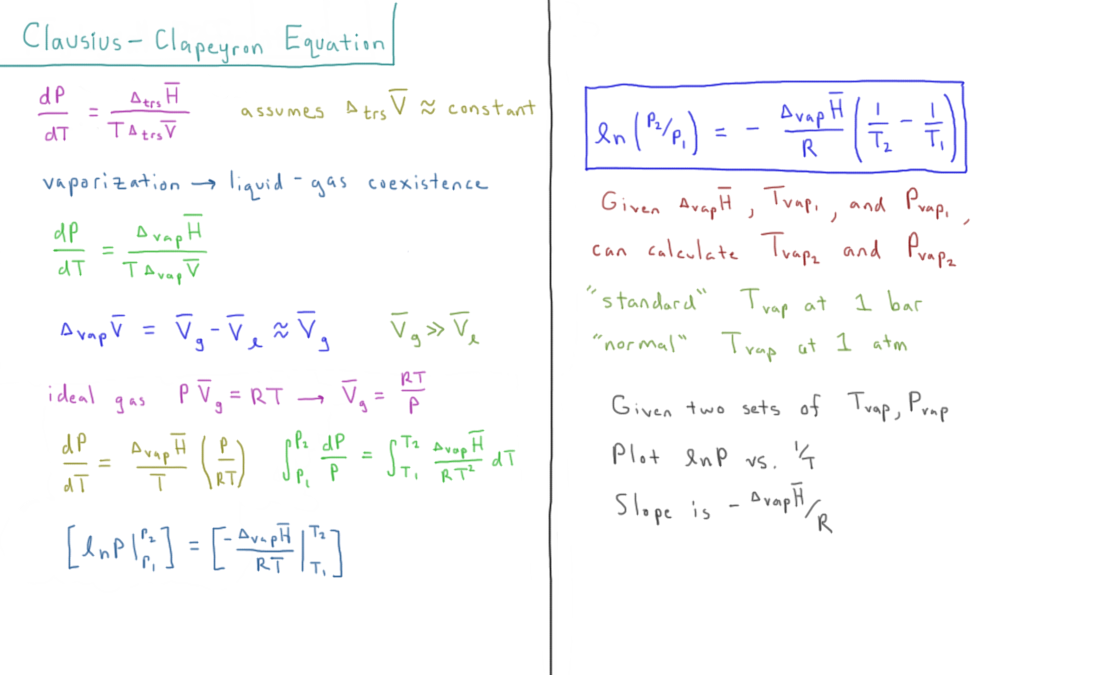 Clausius-Clapeyron Equation
dP/dT = Δtrs H̅ / T Δtrs V̅ assumes Δtrs V̅ ≈ constant
vaporization → liquid-gas coexistence
dP/dT = Δvap H̅ / T Δvap V̅
Δvap V̅ = V̅g - V̅ℓ ≈ V̅g V̅g >> V̅ℓ
ideal gas P V̅g = RT → V̅g = RT/P
dP/dT = Δvap H̅ / T (P/RT) ∫P₁^P₂ dP/P = ∫T₁^T₂ Δvap H̅ / RT² dT
[ln P |P₁^P₂] = [-Δvap H̅ / RT |T₁^T₂]
ln (P₂/P₁) = - Δvap H̅ / R (1/T₂ - 1/T₁)
Given Δvap H̅, Tvap₁, and Pvap₁,
can calculate Tvap₂ and Pvap₂
"standard" Tvap at 1 bar
"normal" Tvap at 1 atm
Given two sets of Tvap, Pvap
Plot ln P vs. 1/T
Slope is - Δvap H̅/R